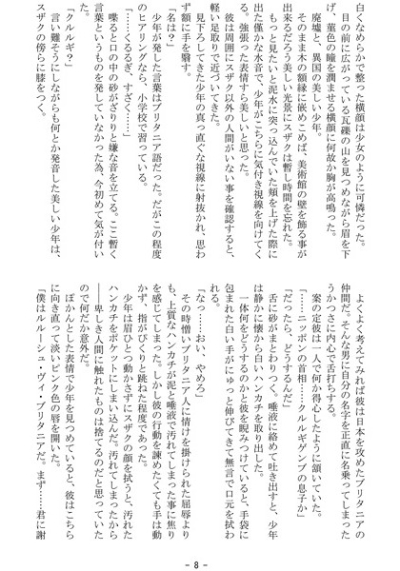 白くなめらかで整った横顔は少女のように可憐だった。
目の前に広がっている瓦礫の山を見つめながら眉を下
げ、菫色の瞳を潤ませる横顔に何故か胸が高鳴った。
廃墟と、異国の美しい少年。
そのまま木の額縁に嵌めこめば、美術館の壁を飾る事が
出来るだろう美しい光景にスザクは暫し時間を忘れた。
もっと見たいと泥水に突っ込んでいた頬を上げた際に
出た僅かな水音で、少年がこちらに気付き視線を向けてく
る。強張った表情すら美しいと思った。
彼は周囲にスザク以外の人間がいない事を確認すると、
軽い足取りで近づいてきた。
見下ろしてきた少年の真っ直ぐな視線に射抜かれ、思わ
ず額に手を翳す。
「名は?」
少年が発した言葉はブリタニア語だった。だがこの程度
のヒアリングなら、小学校で習っている。
「……くるるぎ、すざく……」
喋ると口の中の砂がざりりと嫌な音を立てる。ここ暫く
言葉というものを発していなかった為、今初めて気が付い
た。
「クルルギ?」
言い難そうにしながらも何とか発音した美しい少年は、
スザクの傍らに膝をつく。
よくよく考えてみれば彼は日本を攻めたブリタニアの
仲間だ。そんな男に自分の名字を正直に名乗ってしまった
うかつさに内心で舌打ちする。
案の定彼は一人で何か得心したように頷いていた。
「……ニッポンの首相……クルルギゲンブの息子か」
「だったら、どうするんだ」
舌に砂がまとわりつく。唾液に絡めて吐き出すと、少年
は静かに懐から白いハンカチを取り出した。
一体何をどうするのかと彼を睨みつけていると、手袋に
包まれた白い手がにゅっと伸びてきて無言で口元を拭わ
れる。
「なっ……おい、やめろ」
その時憎いブリタニア人に情けを掛けられた屈辱より
も、上質なハンカチが泥と唾液で汚れてしまった事に焦り
を感じてしまった。しかし彼の行動を諫めたくても手は動
かず、指がぴくりと跳ねた程度であった。
少年は眉ひとつ動かさずにスザクの顔を拭うと、汚れた
ハンカチをポケットにしまい込んだ。汚れてしまったから
――卑しき人間に触れたものは捨てるのだと思っていた
ので何だか意外だ。
ぽかんとした表情で少年を見つめていると、彼はこちら
に向き直って淡いピンク色の唇を開いた。
「僕はルルーシュ・ヴィ・ブリタニアだ。まず……君に謝
- 8 -